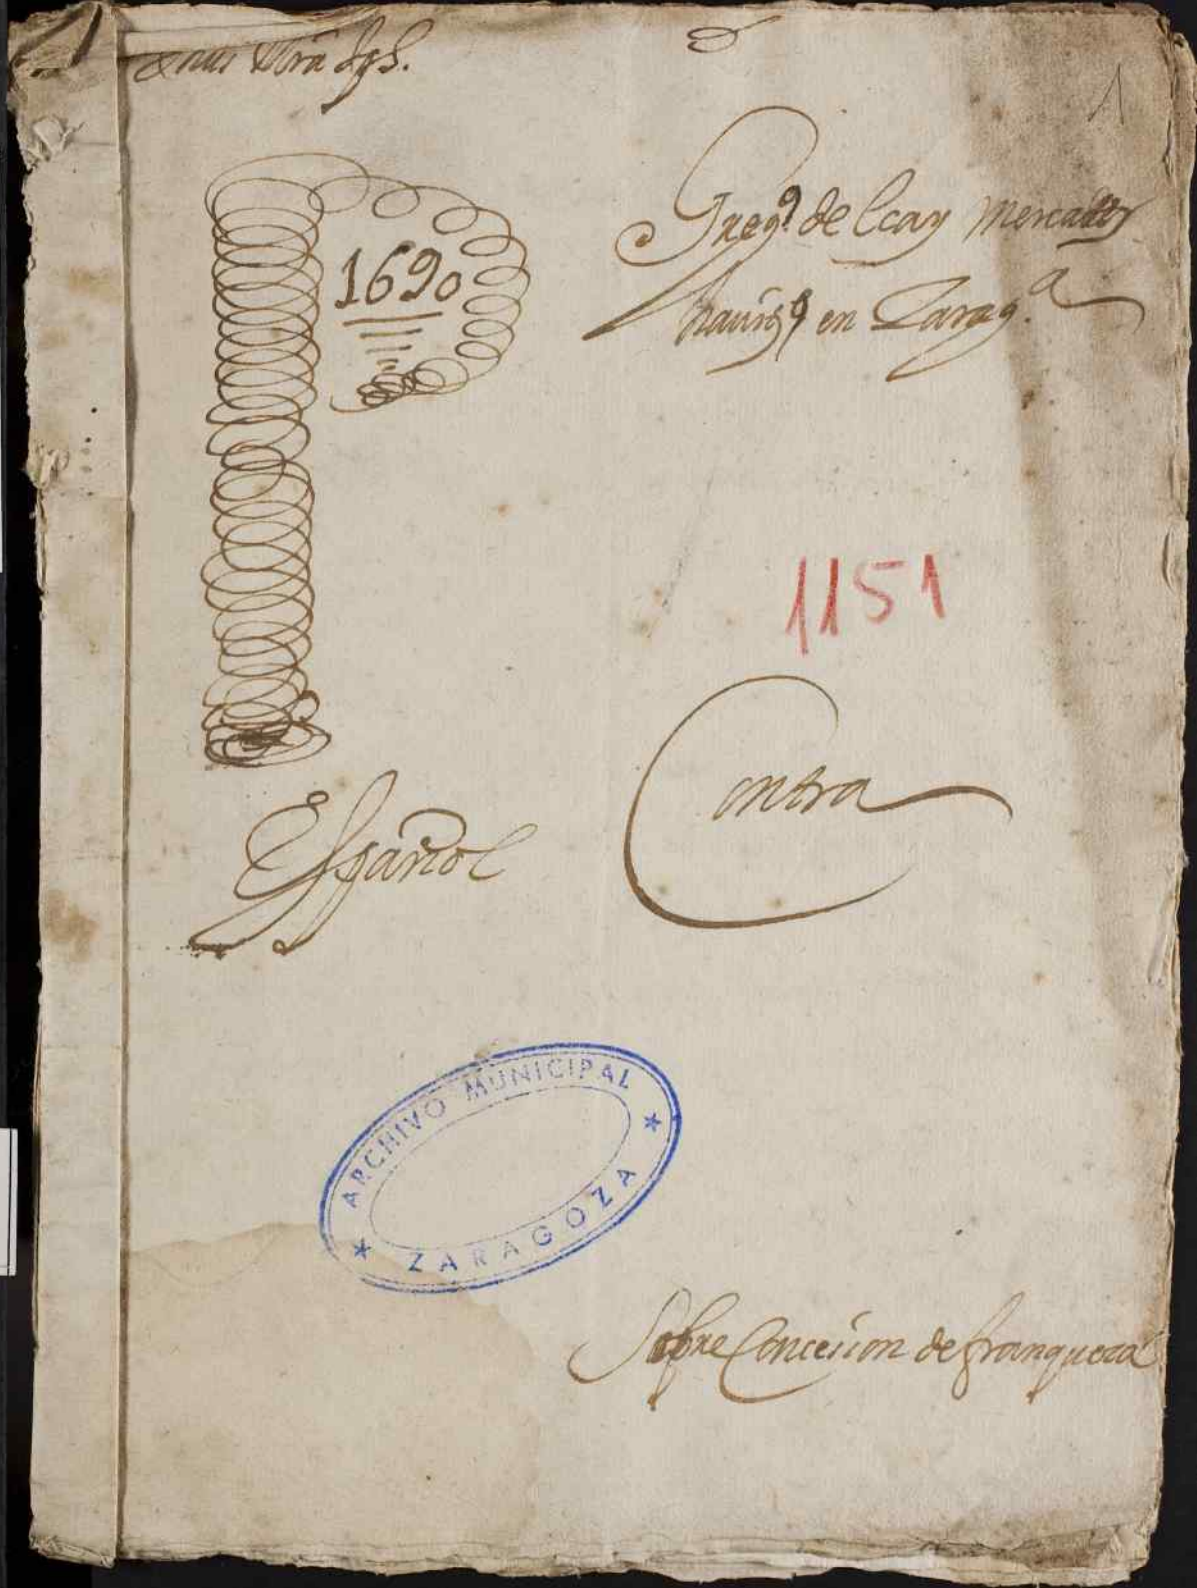 1
1690
Greg.º de Lcay Mercader
havit.e en Zarag.a
1151
Contra
Español
ARCHIVO MUNICIPAL
ZARAGOZA
Sobre Concesion de franqueza